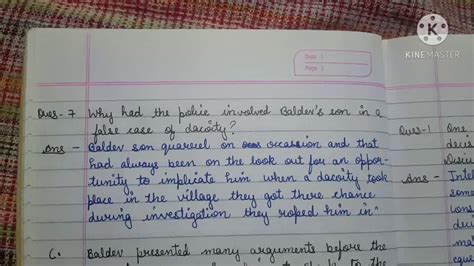 KINEMASTER
Date
Page
Ques-7 Why had the police involved Baldev's son in a
false case of dacoity?
Ans - Baldev son quarrel on occassion and that
had always been on the look out for an oppor-
tunity to implicate him when a dacoity took
place in the village they got there chance
during investigation they roped him in."
C. Baldev presented many arguments before the
to the
Ques-1 One
decis
Discu
Ans - Intel
som
som
mea
equi